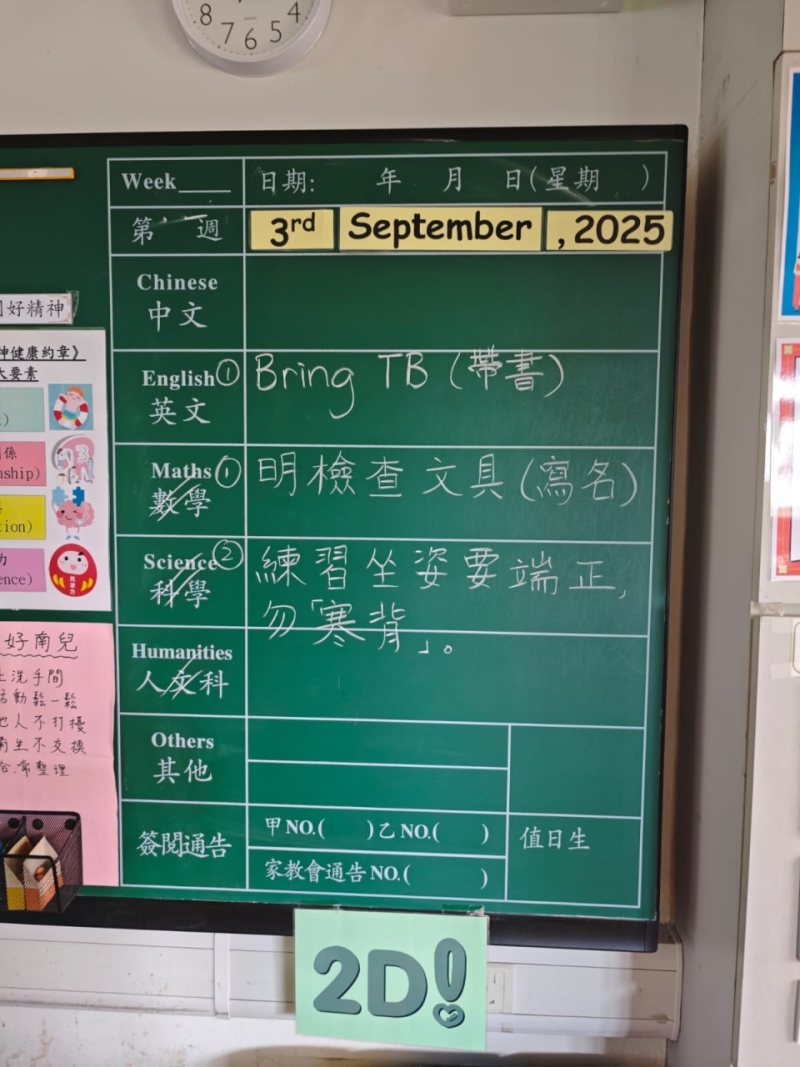 8 7 6 5 4
Week____ 日期: 年 月 日(星期 )
第 週 3rd September , 2025
Chinese
中文
English ① Bring TB (帶書)
英文
Maths ① 明檢查文具(寫名)
數學
Science ② 練習坐姿要端正,
科學 勿「寒背」。
Humanities
人文科
Others
其他
簽閱通告 甲NO.( )乙NO.( ) 值日生
家教會通告NO.( )
2D!
好精神
神健康約章》
大要素
係
nship)
tion)
力
ence)
好南兒
洗手間
活動鬆一鬆
他人不打擾
衛生不交換
常整理